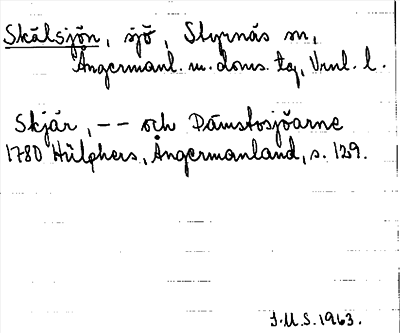 Skålsjön, sjö, Styrnäs sn,
Ångermanl. m. doms. tg, Vrnl. l.
Skjär, -- och Dämstosjöarne
1780 Hülphers, Ångermanland, s. 129.
I.M.S. 1963.